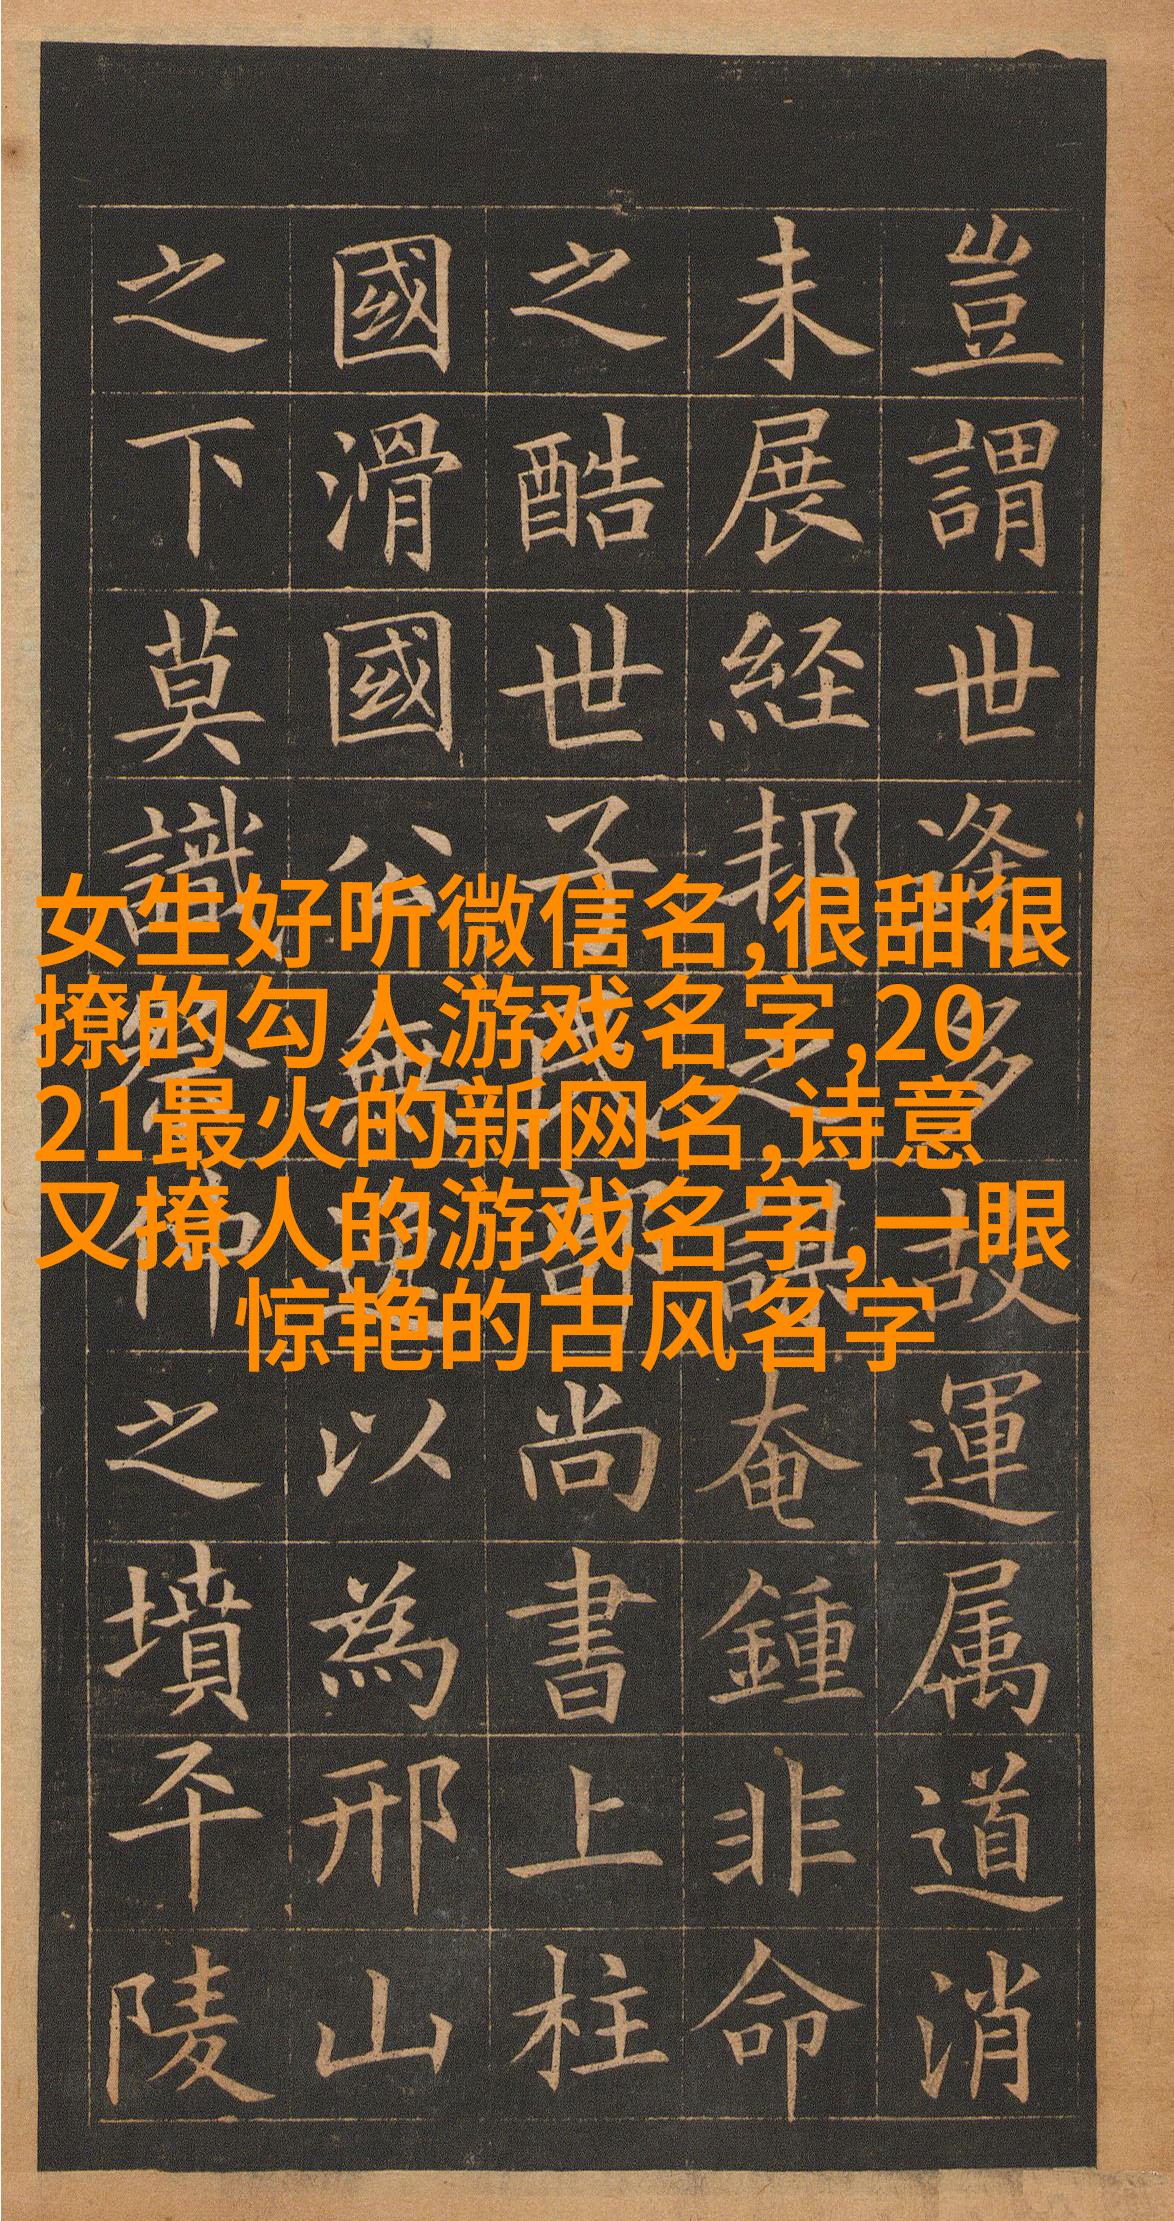 豈謂世逢多故運属道消
未展経邦之謀奄鍾非命
之酷世子民部尚書上柱
國滑國公無逸以為邢山
之下莫識祭仲之墳平陵
女生好听微信名,很甜很
撩的勾人游戏名字,20
21最火的新网名,诗意
又撩人的游戏名字,一眼
惊艳的古风名字